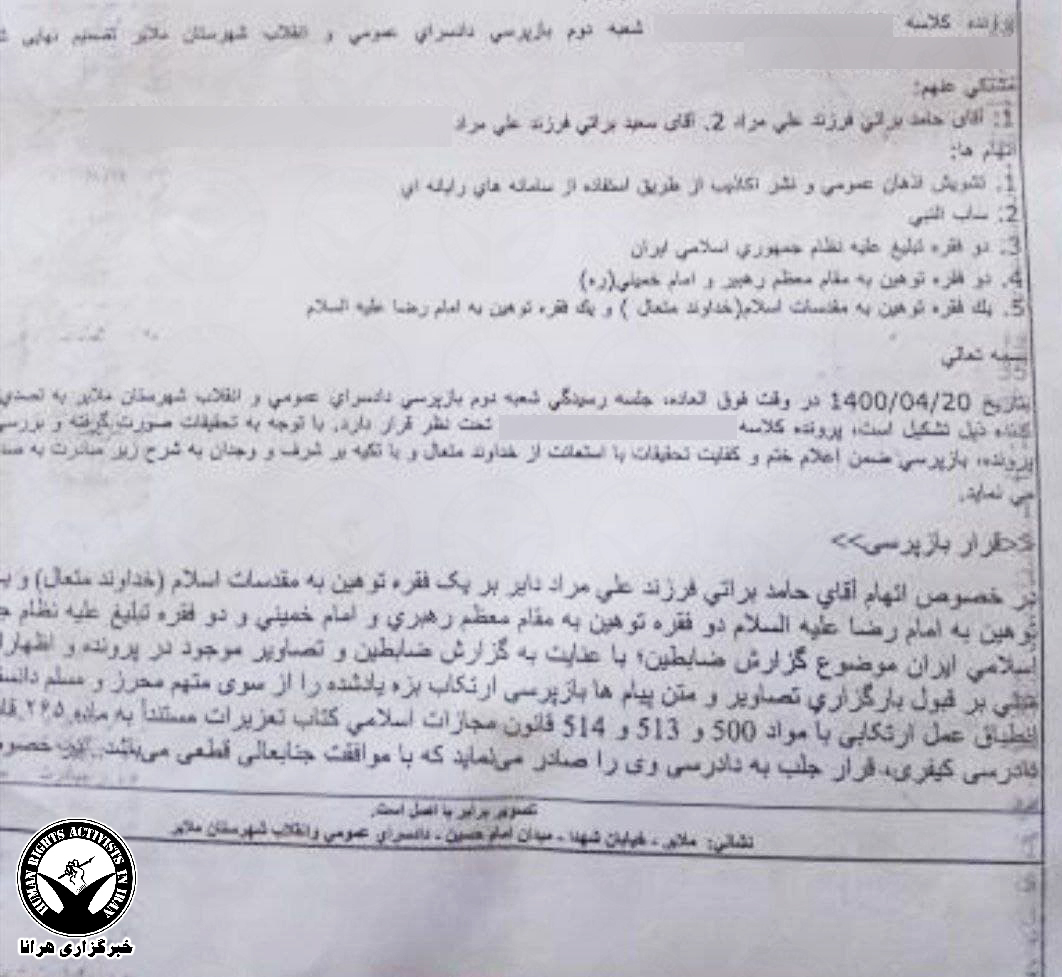 پرونده کلاسه شعبه دوم بازپرسي دادسراي عمومي و انقلاب شهرستان ملاير تصميم نهايي
مشتکي عنهم:
1. آقاي حامد براتي فرزند علي مراد 2. آقاي سعيد براتي فرزند علي مراد
اتهام ها:
1. تشويش اذهان عمومي و نشر اکاذيب از طريق استفاده از سامانه هاي رايانه اي
2. ساب النبي
3. دو فقره تبليغ عليه نظام جمهوري اسلامي ايران
4. دو فقره توهين به مقام معظم رهبر و امام خميني(ره)
5. يك فقره توهين به مقدسات اسلام(خداوند متعال ) و يك فقره توهين به امام رضا عليه السلام
بسمه تعالي
بتاريخ 1400/04/20 در وقت فوق العاده، جلسه رسيدگي شعبه دوم بازپرسي دادسراي عمومي و انقلاب شهرستان ملاير به تصدي
کننده ذيل تشکيل است، پرونده کلاسه تحت نظر قرار دارد. با توجه به تحقيقات صورت گرفته و بررسي
پرونده، بازپرسي ضمن اعلام ختم و کفايت تحقيقات با استعانت از خداوند متعال و با تکيه بر شرف و وجدان به شرح زير مبادرت به
مي نمايد.
قرار بازپرسی>>
در خصوص اتهام آقاي حامد براتي فرزند علي مراد داير بر يک فقره توهين به مقدسات اسلام (خداوند متعال) و
توهين به امام رضا عليه السلام دو فقره توهين به مقام معظم رهبري و امام خميني و دو فقره تبليغ عليه نظام
اسلامي ايران موضوع گزارش ضابطين؛ با عنايت به گزارش ضابطين و تصاوير موجود در پرونده و
مبني بر قبول بارگزاري تصاوير و متن پيام ها بازپرسی ارتکاب بزه يادشده را از سوی متهم محرز و مسلم
انطباق عمل ارتکابی با مواد 500 و 513 و 514 قانون مجازات اسلامي کتاب تعزيرات مستنداً به ماده ۲۶۵
دادرسی کيفری، قرار جلب به دادرسی وی را صادر می‌نمايد که با موافقت جنابعالی قطعی می‌باشد. اين
تصوير برابر با اصل است.
نشاني: ملاير - خيابان شهدا - ميدان امام حسين - دادسراي عمومي وانقلاب شهرستان ملاير
HUMAN RIGHTS ACTIVISTS IN IRAN
خبرگزاری هرانا